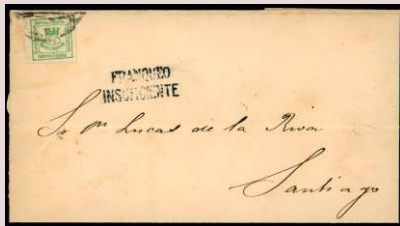 FRANQUEO
INSUFICIENTE
Sr Dn Lucas de la Riva
Santiago